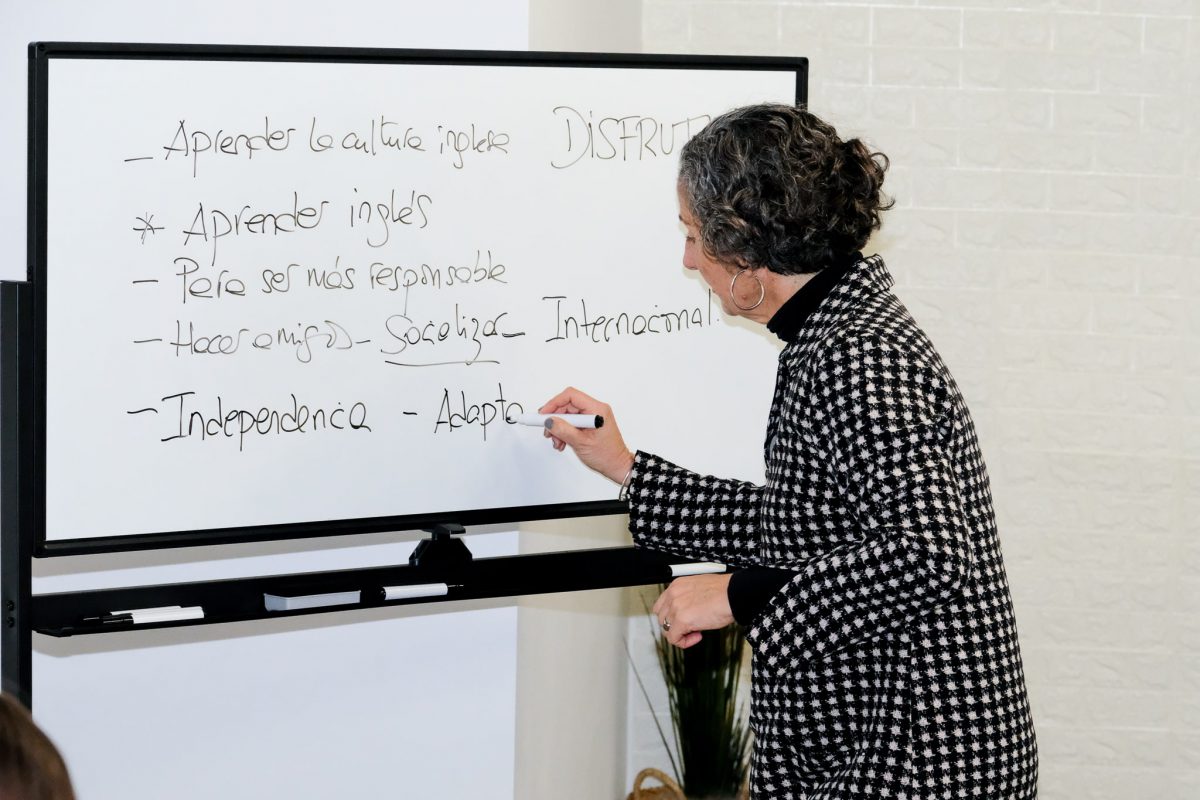 – Aprender la cultura inglesa DISFRUT
* Aprender inglés
– Para ser más responsable
– Hacer amigos – Socializar – Internacional.
– Independencia – Adapta